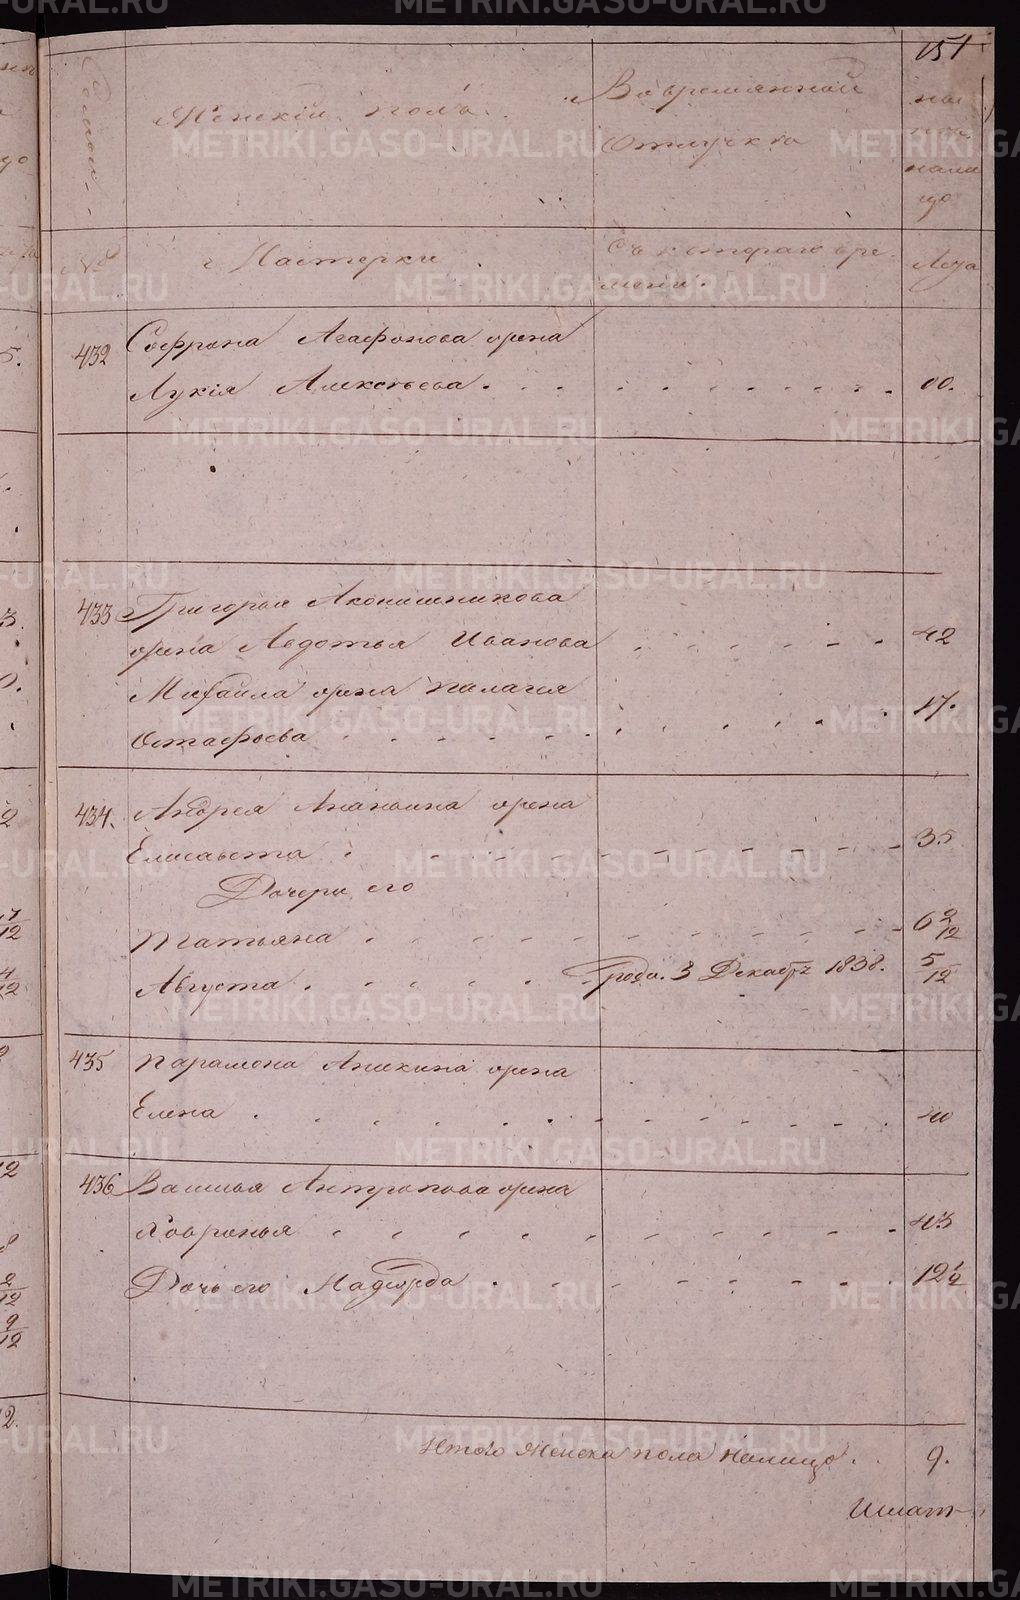 151
Женскiй полъ.
Во временной
отлучке
на
лицо
№
Мастерки
Съ котораго вре-
мени.
Лета
432
Софрона Агафонова жена
Лукiя Алексеева
60.
433
Григорья Аконишникова
жена Авдотья Иванова
42
Михаила жена Палагея
Остафьева
17.
434.
Андрея Ананьина жена
Елисавета
35
Дочери его
Татьяна
6 2/12
Августа
рода. 3 Декабр 1838.
5/12
435
Парамона Аникина жена
Елена
40
436
Василья Антропова жена
Хавронья
43
Дочь его Надежда
12 1/2
Итого женска пола налицо
9.
METRIKI.GASO-URAL.RU